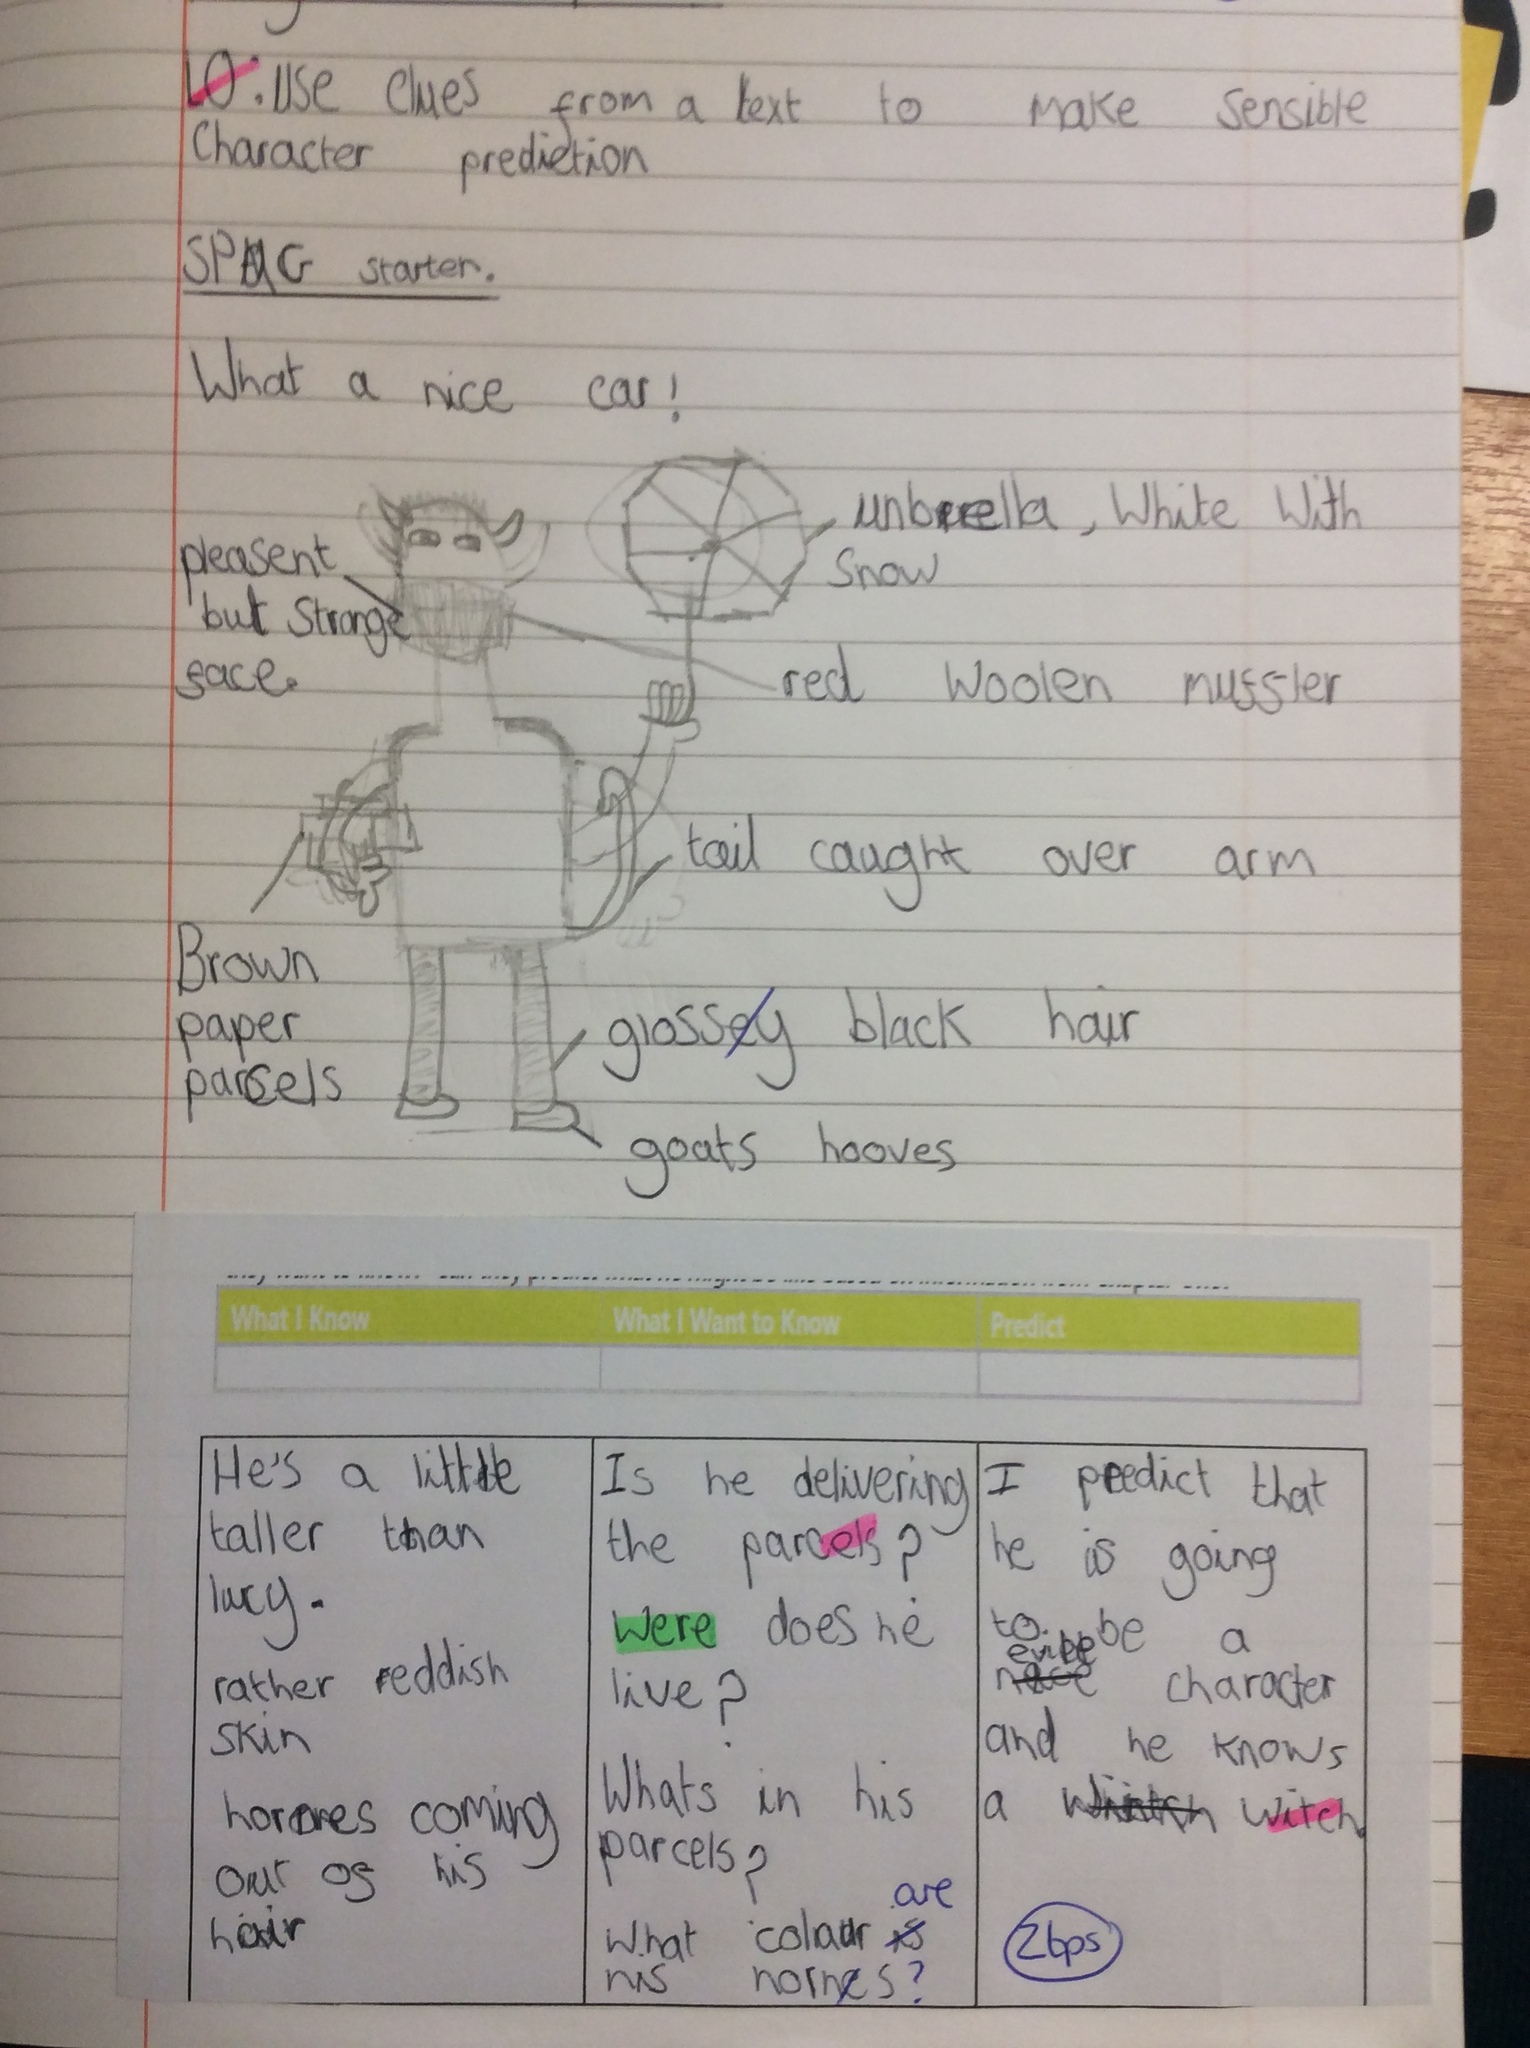 LO: Use clues from a text to make sensible
Character prediction
SPAG starter.
What a nice car!
unbrella, White With
Snow
pleasent
but Strange
face.
red Woolen muffler
tail caught over arm
Brown
paper
parcels
glossy black hair
goats hooves
What I Know What I Want to Know Predict
He's a little
taller than
lucy.
rather reddish
skin
hornes coming
out of his
hair
Is he delivering
the parcels?
Were does he
live?
Whats in his
parcels?
are
What colour is
his horns?
I predict that
he is going
to be a
character
and he knows
a witch.
2bps